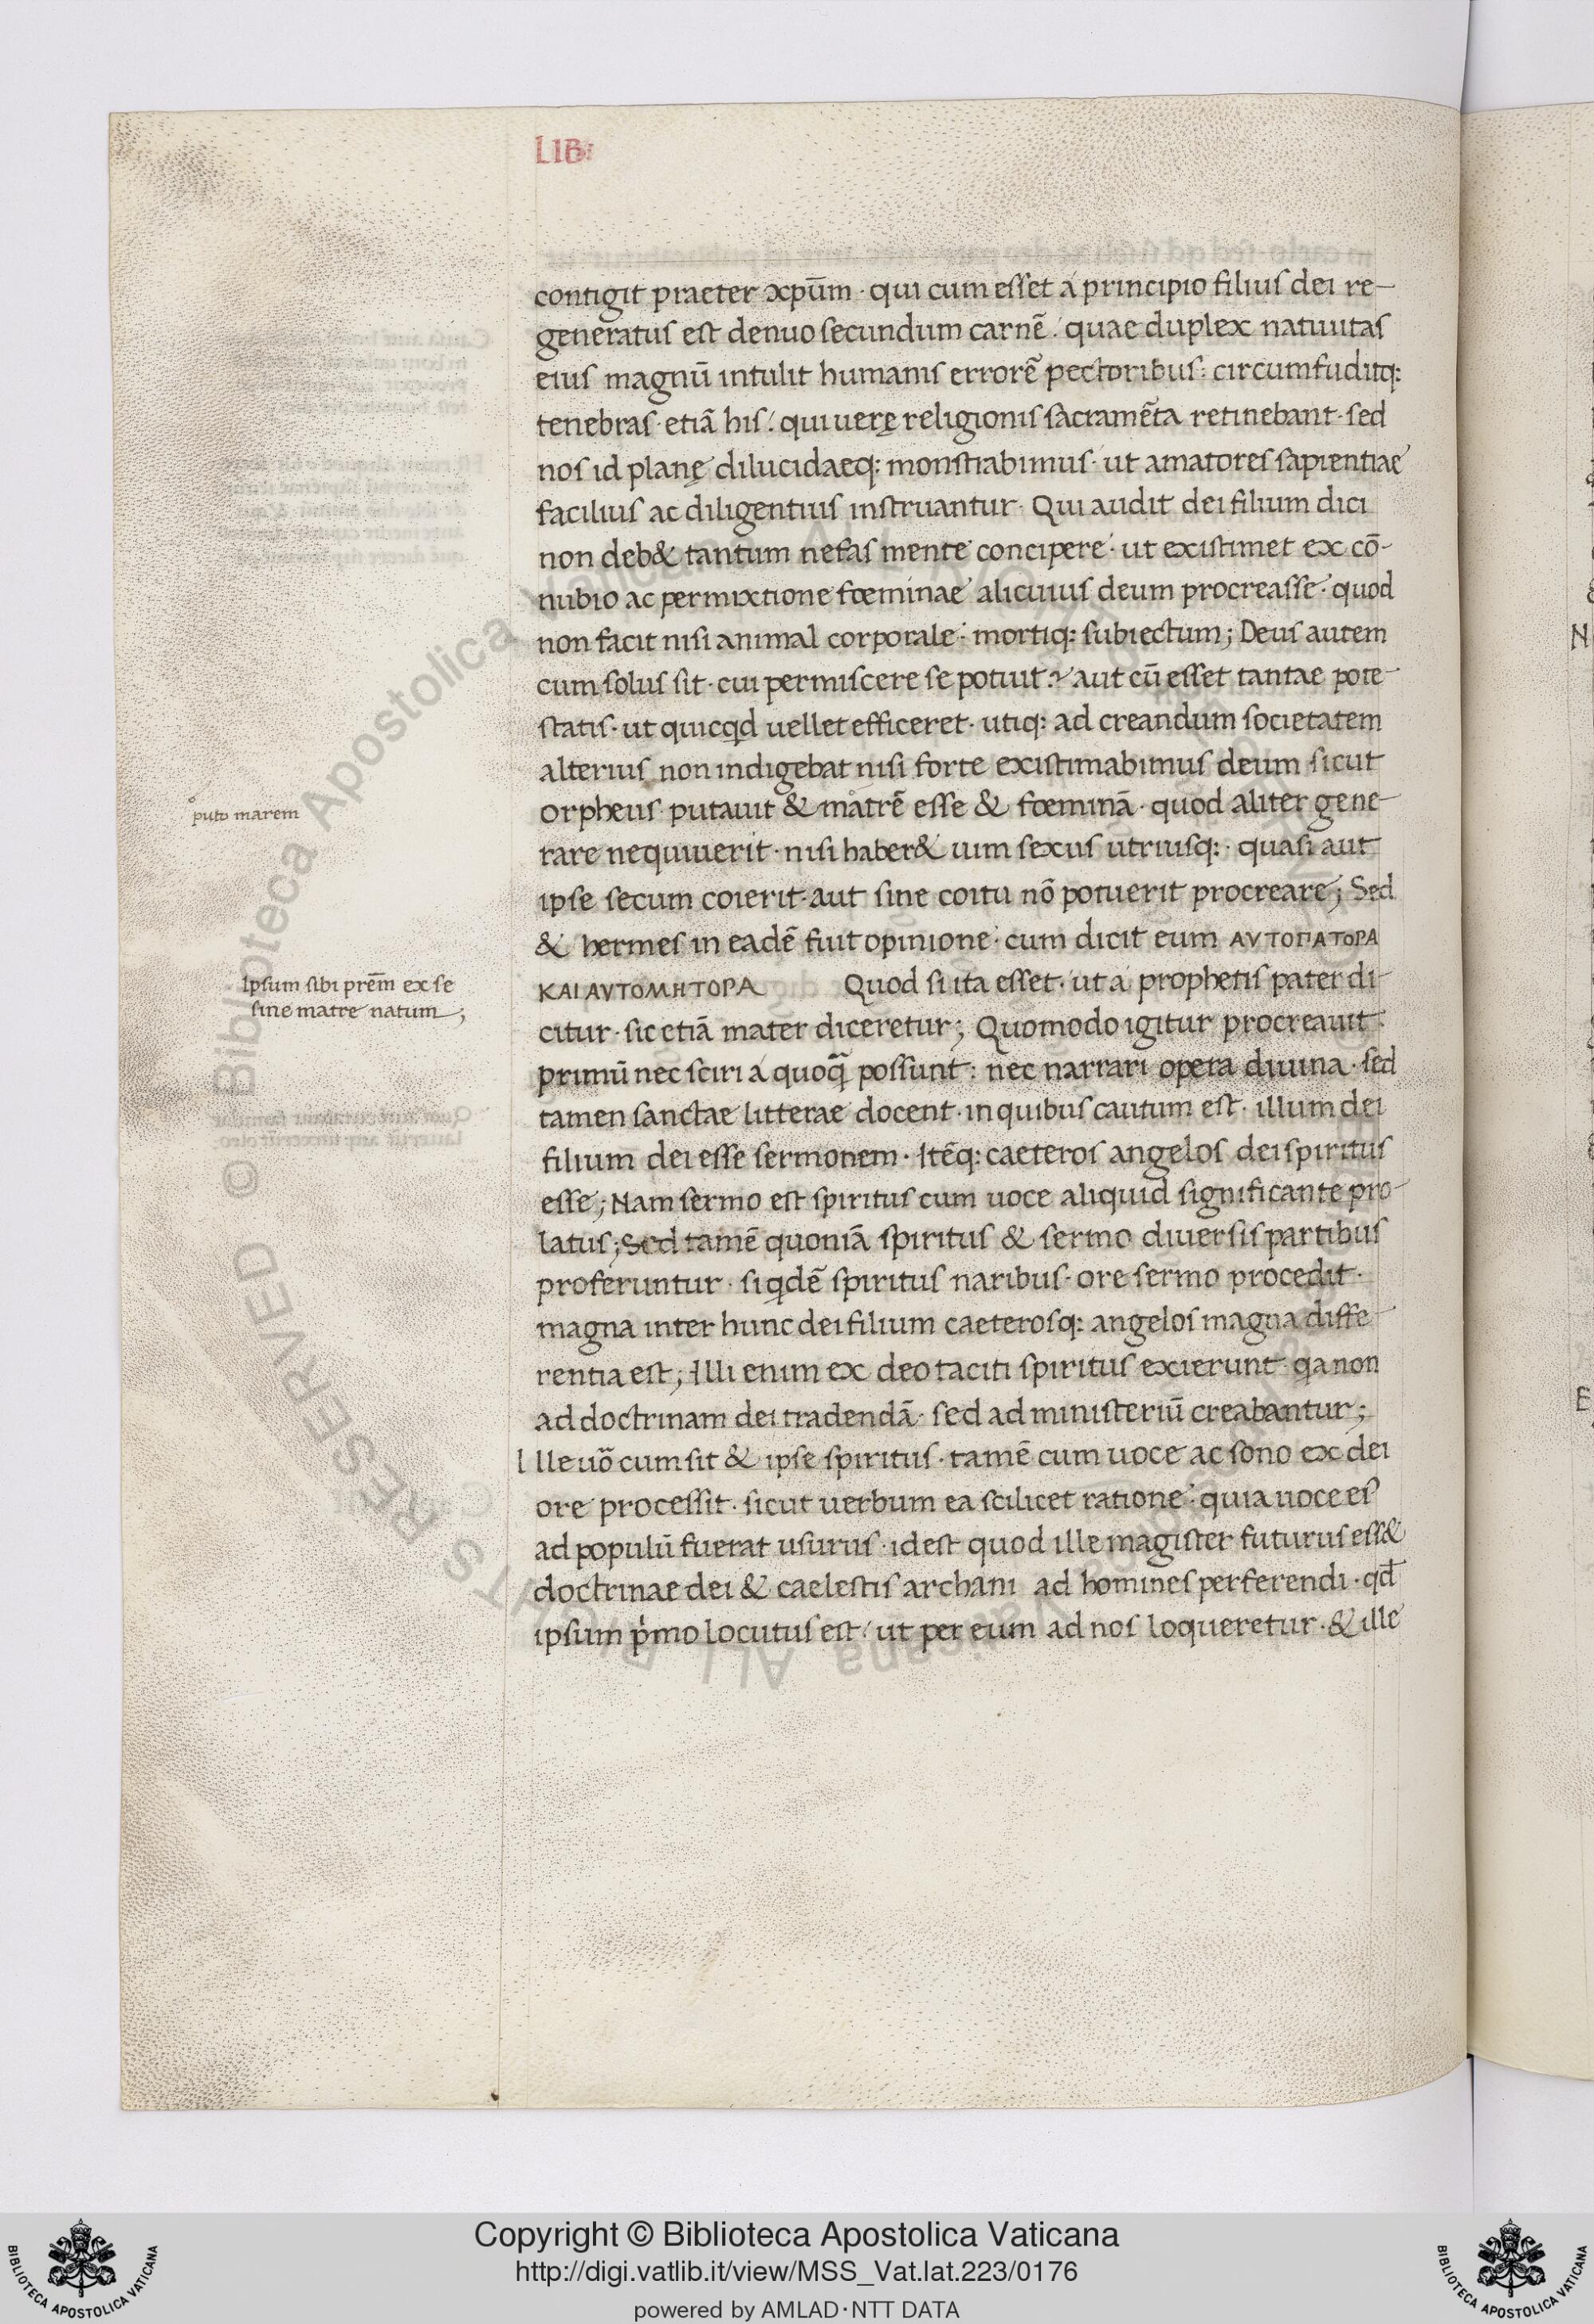 LIB
contigit praeter xp̄um · qui cum esset a principio filius dei re-
generatus est denuo secundum carnē · quae duplex natiuitas
eius magnū intulit humanis errorē pectoribus : circumfuditq:
tenebras · etiā his · qui uerę religionis sacramēta retinebant · sed
nos id planę dilucidaeq: monstrabimus · ut amatores sapientiae
facilius ac diligentius instruantur · Qui audit dei filium dici
non deb& tantum nefas mente concipere · ut existimet ex cō-
nubio ac permixtione foeminae alicuius deum procreasse · quod
non facit nisi animal corporale · mortiq: subiectum ; Deus autem
cum solus sit · cui permiscere se potuit ? aut cū esset tantae pote-
statis · ut quicqd uellet efficeret · utiq: ad creandum societatem
alterius non indigebat nisi forte existimabimus deum sicut
orpheus putauit & matrē esse & foeminā · quod aliter gene-
puto marem
rare nequiuerit · nisi haber& uim sexus utriusq: · quasi aut
ipse secum coierit · aut sine coitu nō potuerit procreare ; Sed
& hermes in eadē fuit opinione · cum dicit eum ΑΥΤΟΠΑΤΟΡΑ
ΚΑΙ ΑΥΤΟΜΗΤΟΡΑ Quod si ita esset · ut a prophetis pater di-
Ipsum sibi prēm ex se
sine matre natum ;
citur · sic etiā mater diceretur ; Quomodo igitur procreauit ·
primū nec sciri a quoq̄ possunt : nec narrari opera diuina · sed
tamen sanctae litterae docent · in quibus cautum est · illum dei
filium dei esse sermonem · Itēq: caeteros angelos dei spiritus
esse ; Nam sermo est spiritus cum uoce aliquid significante pro-
latus ; Sed tamē quoniā spiritus & sermo diuersis partibus
proferuntur · siqdē spiritus naribus · ore sermo procedit ·
magna inter hunc dei filium caeterosq: angelos magna diffe-
rentia est ; Illi enim ex deo taciti spiritus exierunt · qa non
ad doctrinam dei tradendā · sed ad ministeriū creabantur ;
I lle uō cum sit & ipse spiritus · tamē cum uoce ac sono ex dei
ore processit · sicut uerbum ea scilicet ratione · quia uoce ei'
ad populū fuerat usurus · id est quod ille magister futurus ess&
doctrinae dei & caelestis archani ad homines perferendi · qd̄
ipsum pimo locutus est · ut per eum ad nos loqueretur · & ille
Copyright © Biblioteca Apostolica Vaticana
http://digi.vatlib.it/view/MSS_Vat.lat.223/0176
powered by AMLAD·NTT DATA
BIBLIOTECA APOSTOLICA VATICANA
BIBLIOTECA APOSTOLICA VATICANA